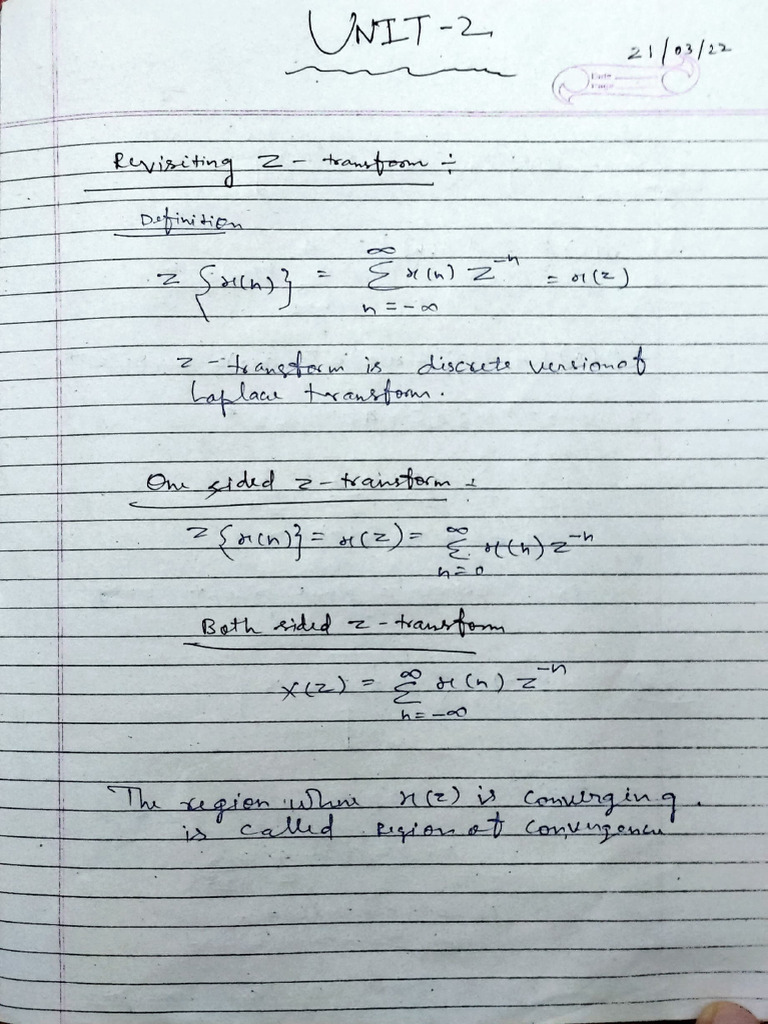 UNIT-2
21/03/22
Revisiting Z - transform ÷
Definition
Z {x(n)} = ∞ Σ n=-∞ x(n) Z^-n = x(z)
z - transform is discrete version of
Laplace transform.
One sided z-transform ÷
Z {x(n)} = x(z) = ∞ Σ n=0 x(n) z^-n
Both sided z - transform
X(z) = ∞ Σ n=-∞ x(n) z^-n
The region where x(z) is converging.
is called region of convergence